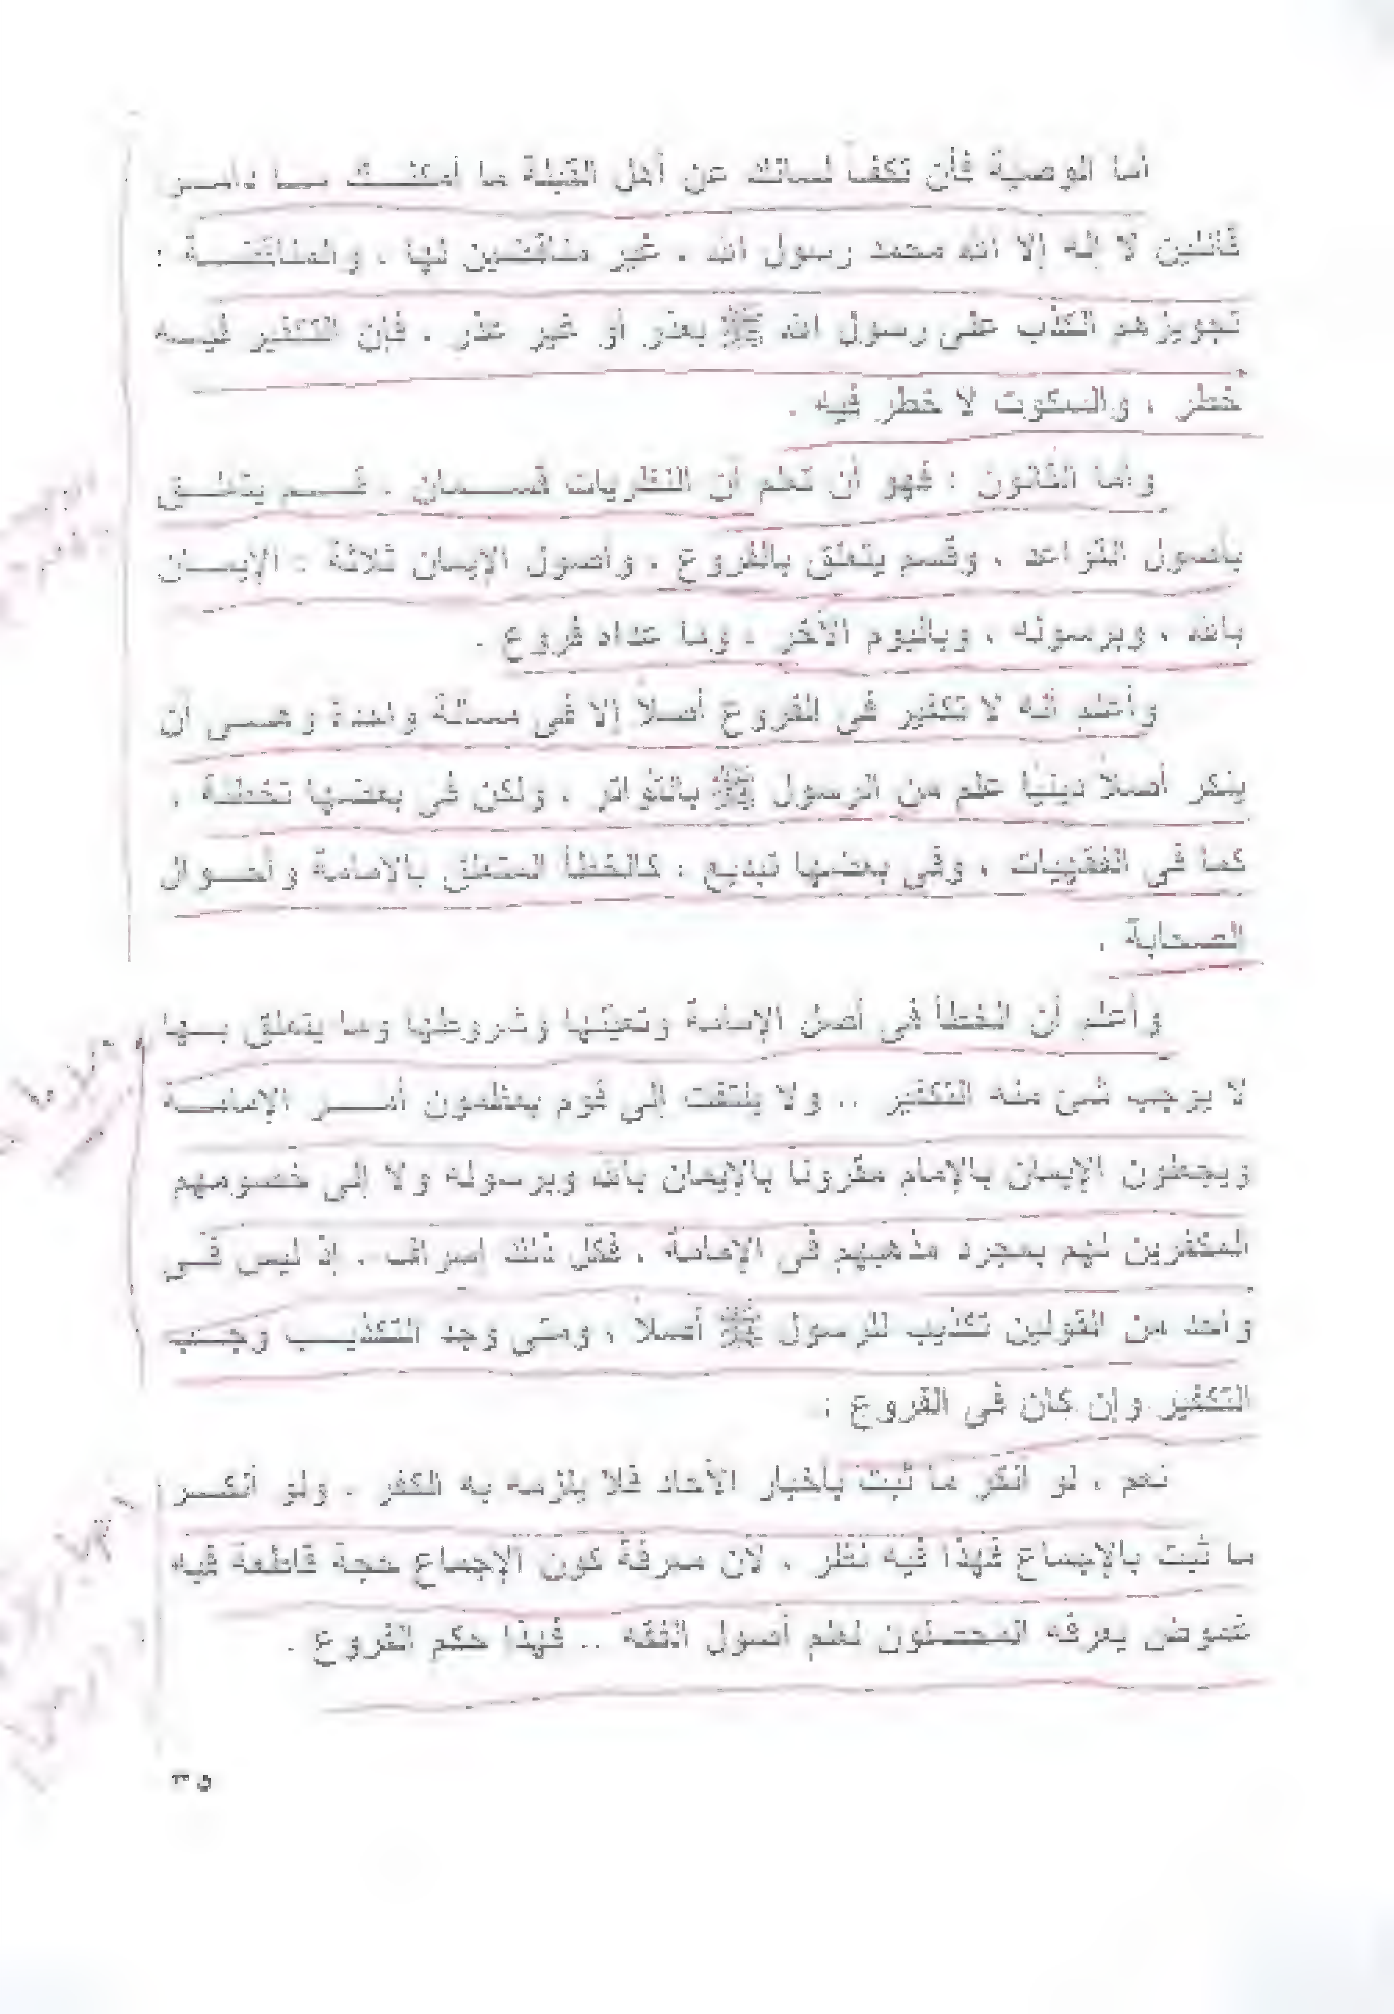 أما الوصية فأن تكف لسانك عن أهل القبلة ما أمكنك ما داموا
قائلين لا إله إلا الله محمد رسول الله ، غير مناقضين لها ، والمناقضة :
تجويزهم الكذب على رسول الله ﷺ بعذر أو غير عذر ، فإن التكفير فيه
خطر ، والسكوت لا خطر فيه .
وأما القانون : فهو أن تعلم أن النظريات قسمان ، قسم يتعلق
بأصول القواعد ، وقسم يتعلق بالفروع ، وأصول الإيمان ثلاثة : الإيمان
بالله ، وبرسوله ، وباليوم الآخر ، وما عداه فروع .
وأعلم أنه لا تكفير فى الفروع أصلاً إلا فى مسألة واحدة وهى أن
ينكر أصلاً دينياً علم من الرسول ﷺ بالتواتر ، ولكن فى بعضها تخطئة ،
كما فى الفقهيات ، وفى بعضها تبديع ، كالخطأ المتعلق بالإمامة وأحوال
الصحابة .
وأعلم أن الخطأ فى أصل الإمامة وتعينها وشروطها وما يتعلق بها
لا يوجب شئ منه التكفير .. ولا يلتفت إلى قوم يعظمون أمر الإمامة
ويجعلون الإيمان بالإمام مقروناً بالإيمان بالله وبرسوله ولا إلى خصومهم
المكفرين لهم بمجرد مذهبهم فى الإمامة ، فكل ذلك إسراف ، إذ ليس فى
واحد من القولين تكذيب للرسول ﷺ أصلاً ، ومتى وجد التكذيب وجب
التكفير وإن كان فى الفروع :
نعم ، لو أنكر ما ثبت بأخبار الآحاد فلا يلزمه به الكفر ، ولو أنكر
ما ثبت بالإجماع فهذا فيه نظر ، لأن معرفة كون الإجماع حجة قاطعة فيه
غموض يعرفه المحصلون لعلم أصول الفقه .. فهذا حكم الفروع .
٣٥